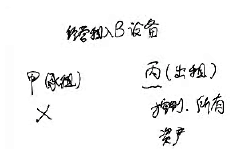 经营租入B设备
甲(承租) 丙(出租)
X 控制、所有
资产